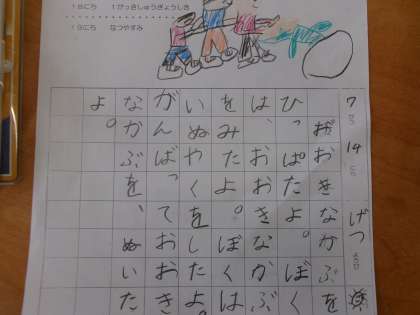 18ごろ 1がっきしゅうぎょうしき
19ごろ なつやすみ
7 14 げつ
おおきなかぶを
ひっぱたよ。ぼく
は、おおきなかぶ
をみたよ。ぼくは
いぬやくをしたよ。
がんばっておおき
なかぶを、ぬいた
よ。